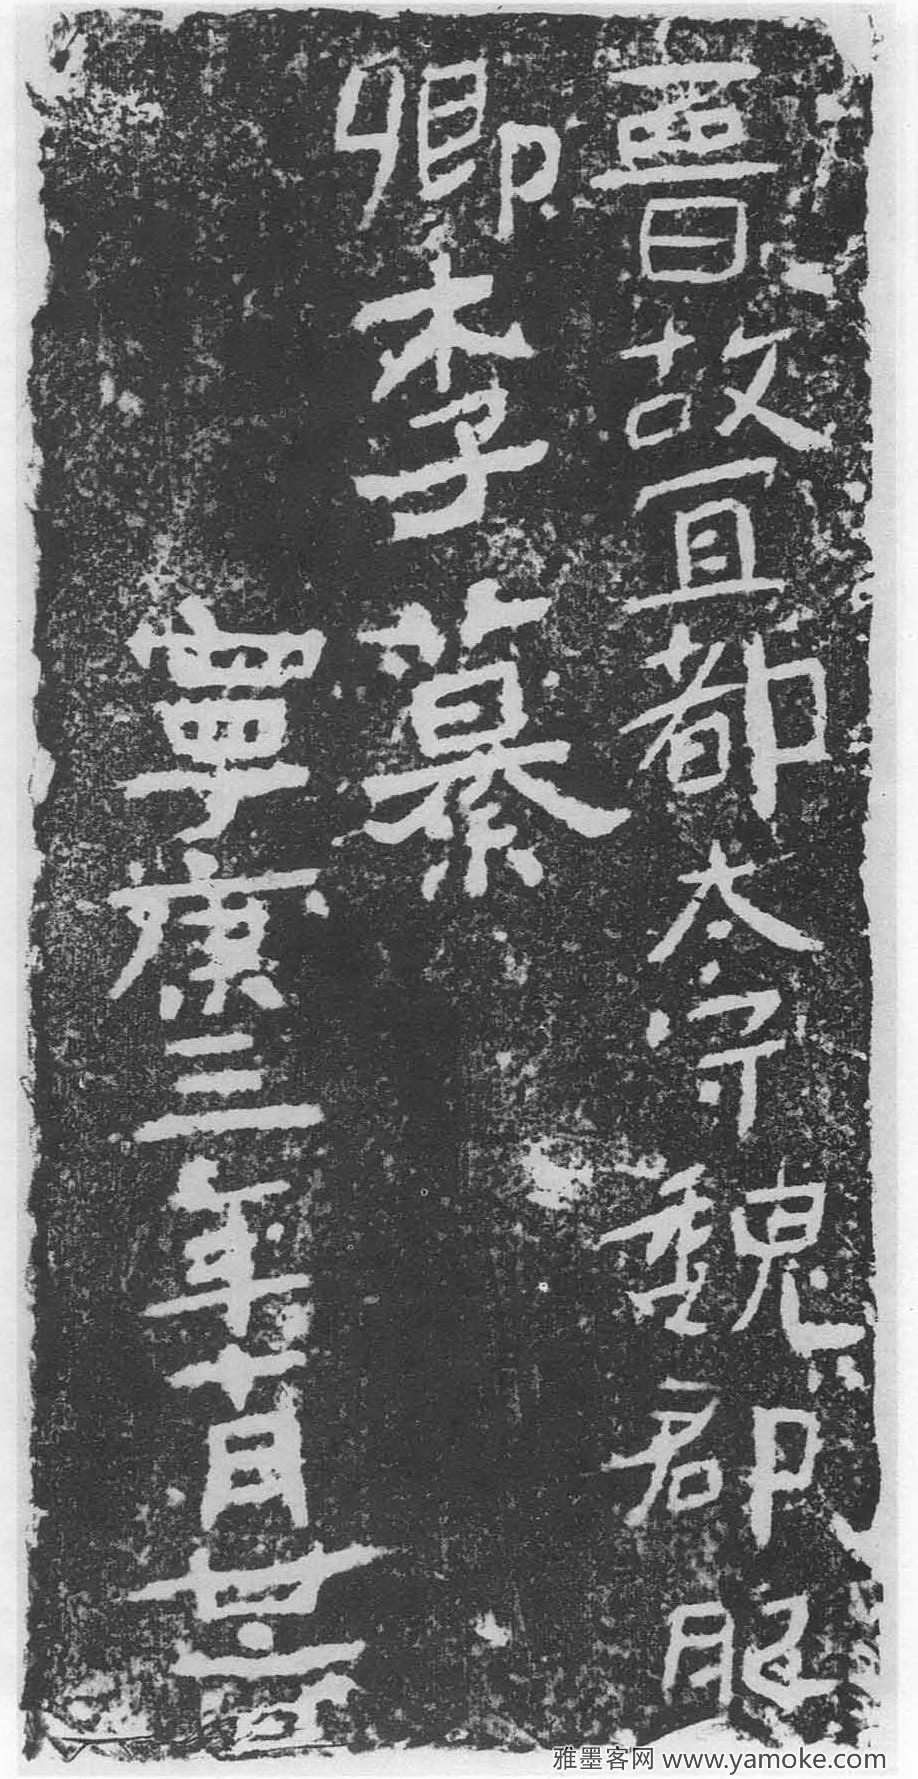 晉故宜都太守魏郡肥
鄉李纂
寧康三年十月廿六日
雅墨客网 www.yamoke.com